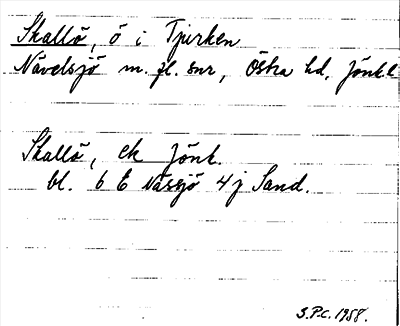 Skallö, ö i Tjurken
Nävelsjö m. fl. snr, Östra hd, Jönk. l
Skallö, ek Jönk.
bl. 6 E Nässjö 4 j Sand.
S.P.C. 1958.